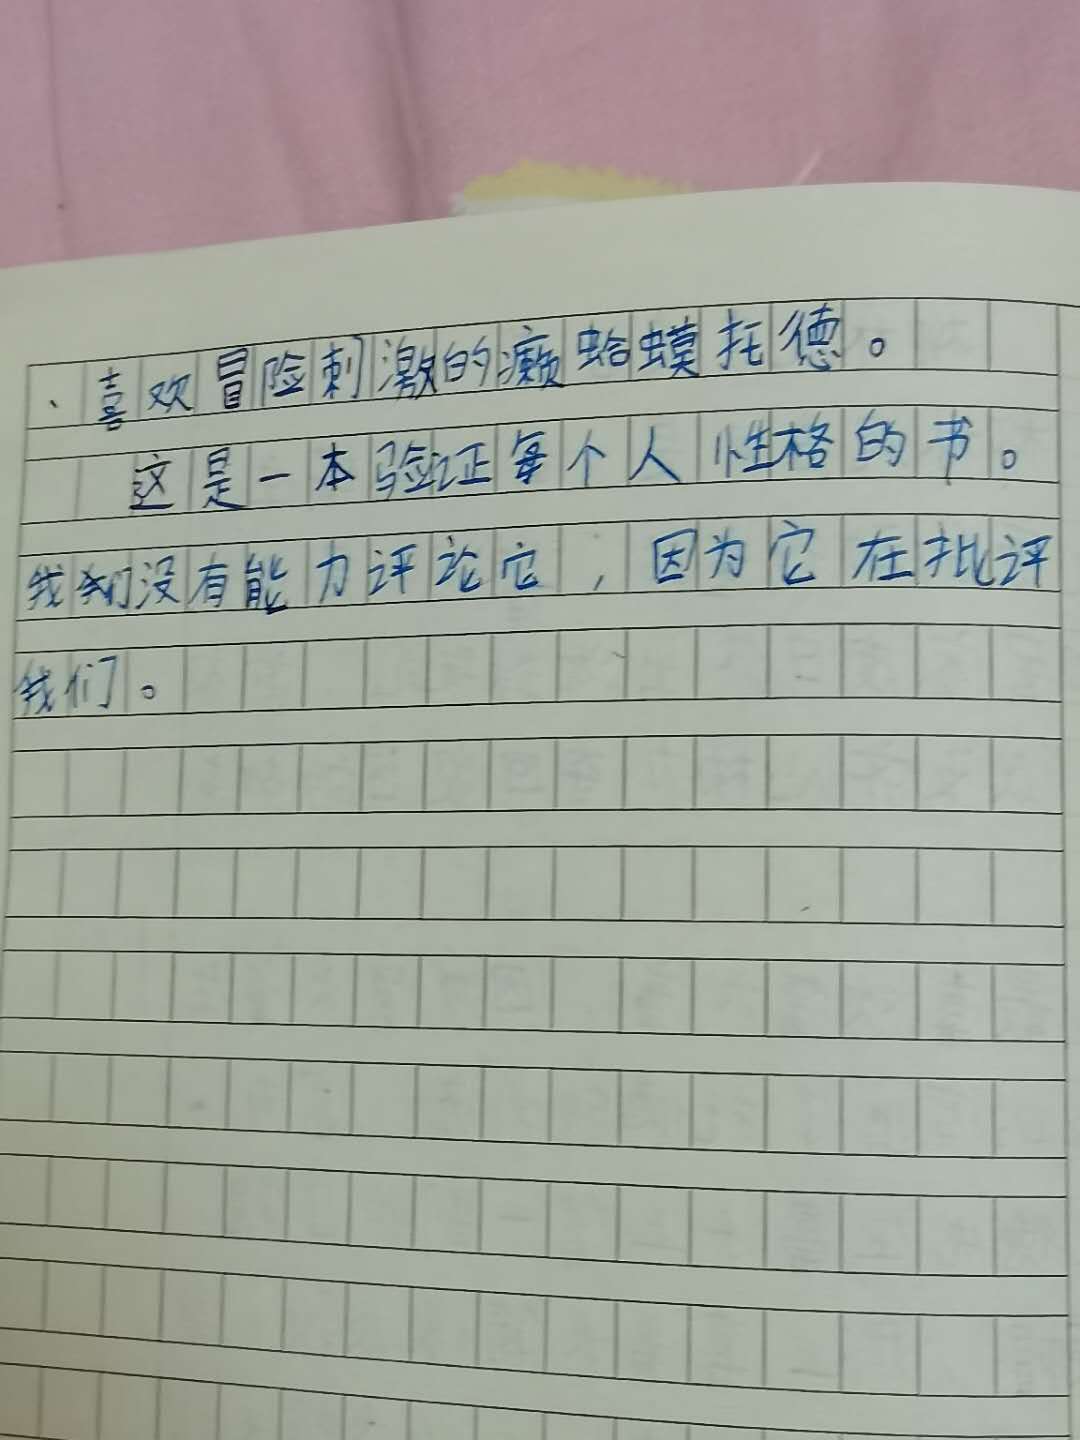 、喜欢冒险刺激的癞蛤蟆托德。
这是一本验证每个人性格的书。
我们没有能力评论它，因为它在批评
我们。